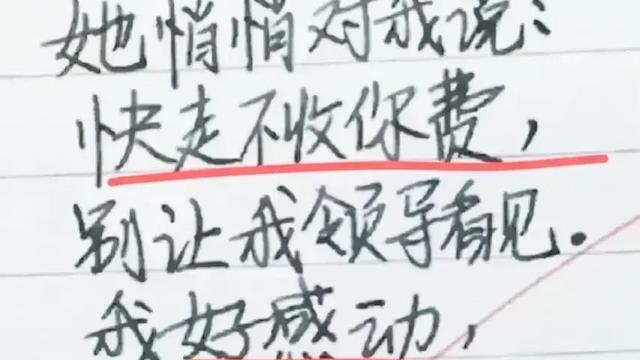 她悄悄对我说：
快走不收你费，
别让我领导看见.
我好感动，